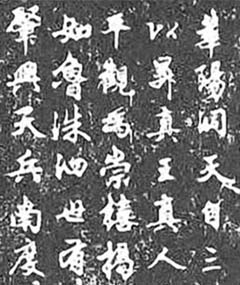 華陽洞天自三
以昇真王真人
平觀為崇禧揭
如魯洙泗世有
肇興天兵南度